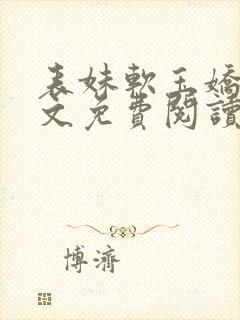 表妹軟玉嬌
文免費閱讀
博濟